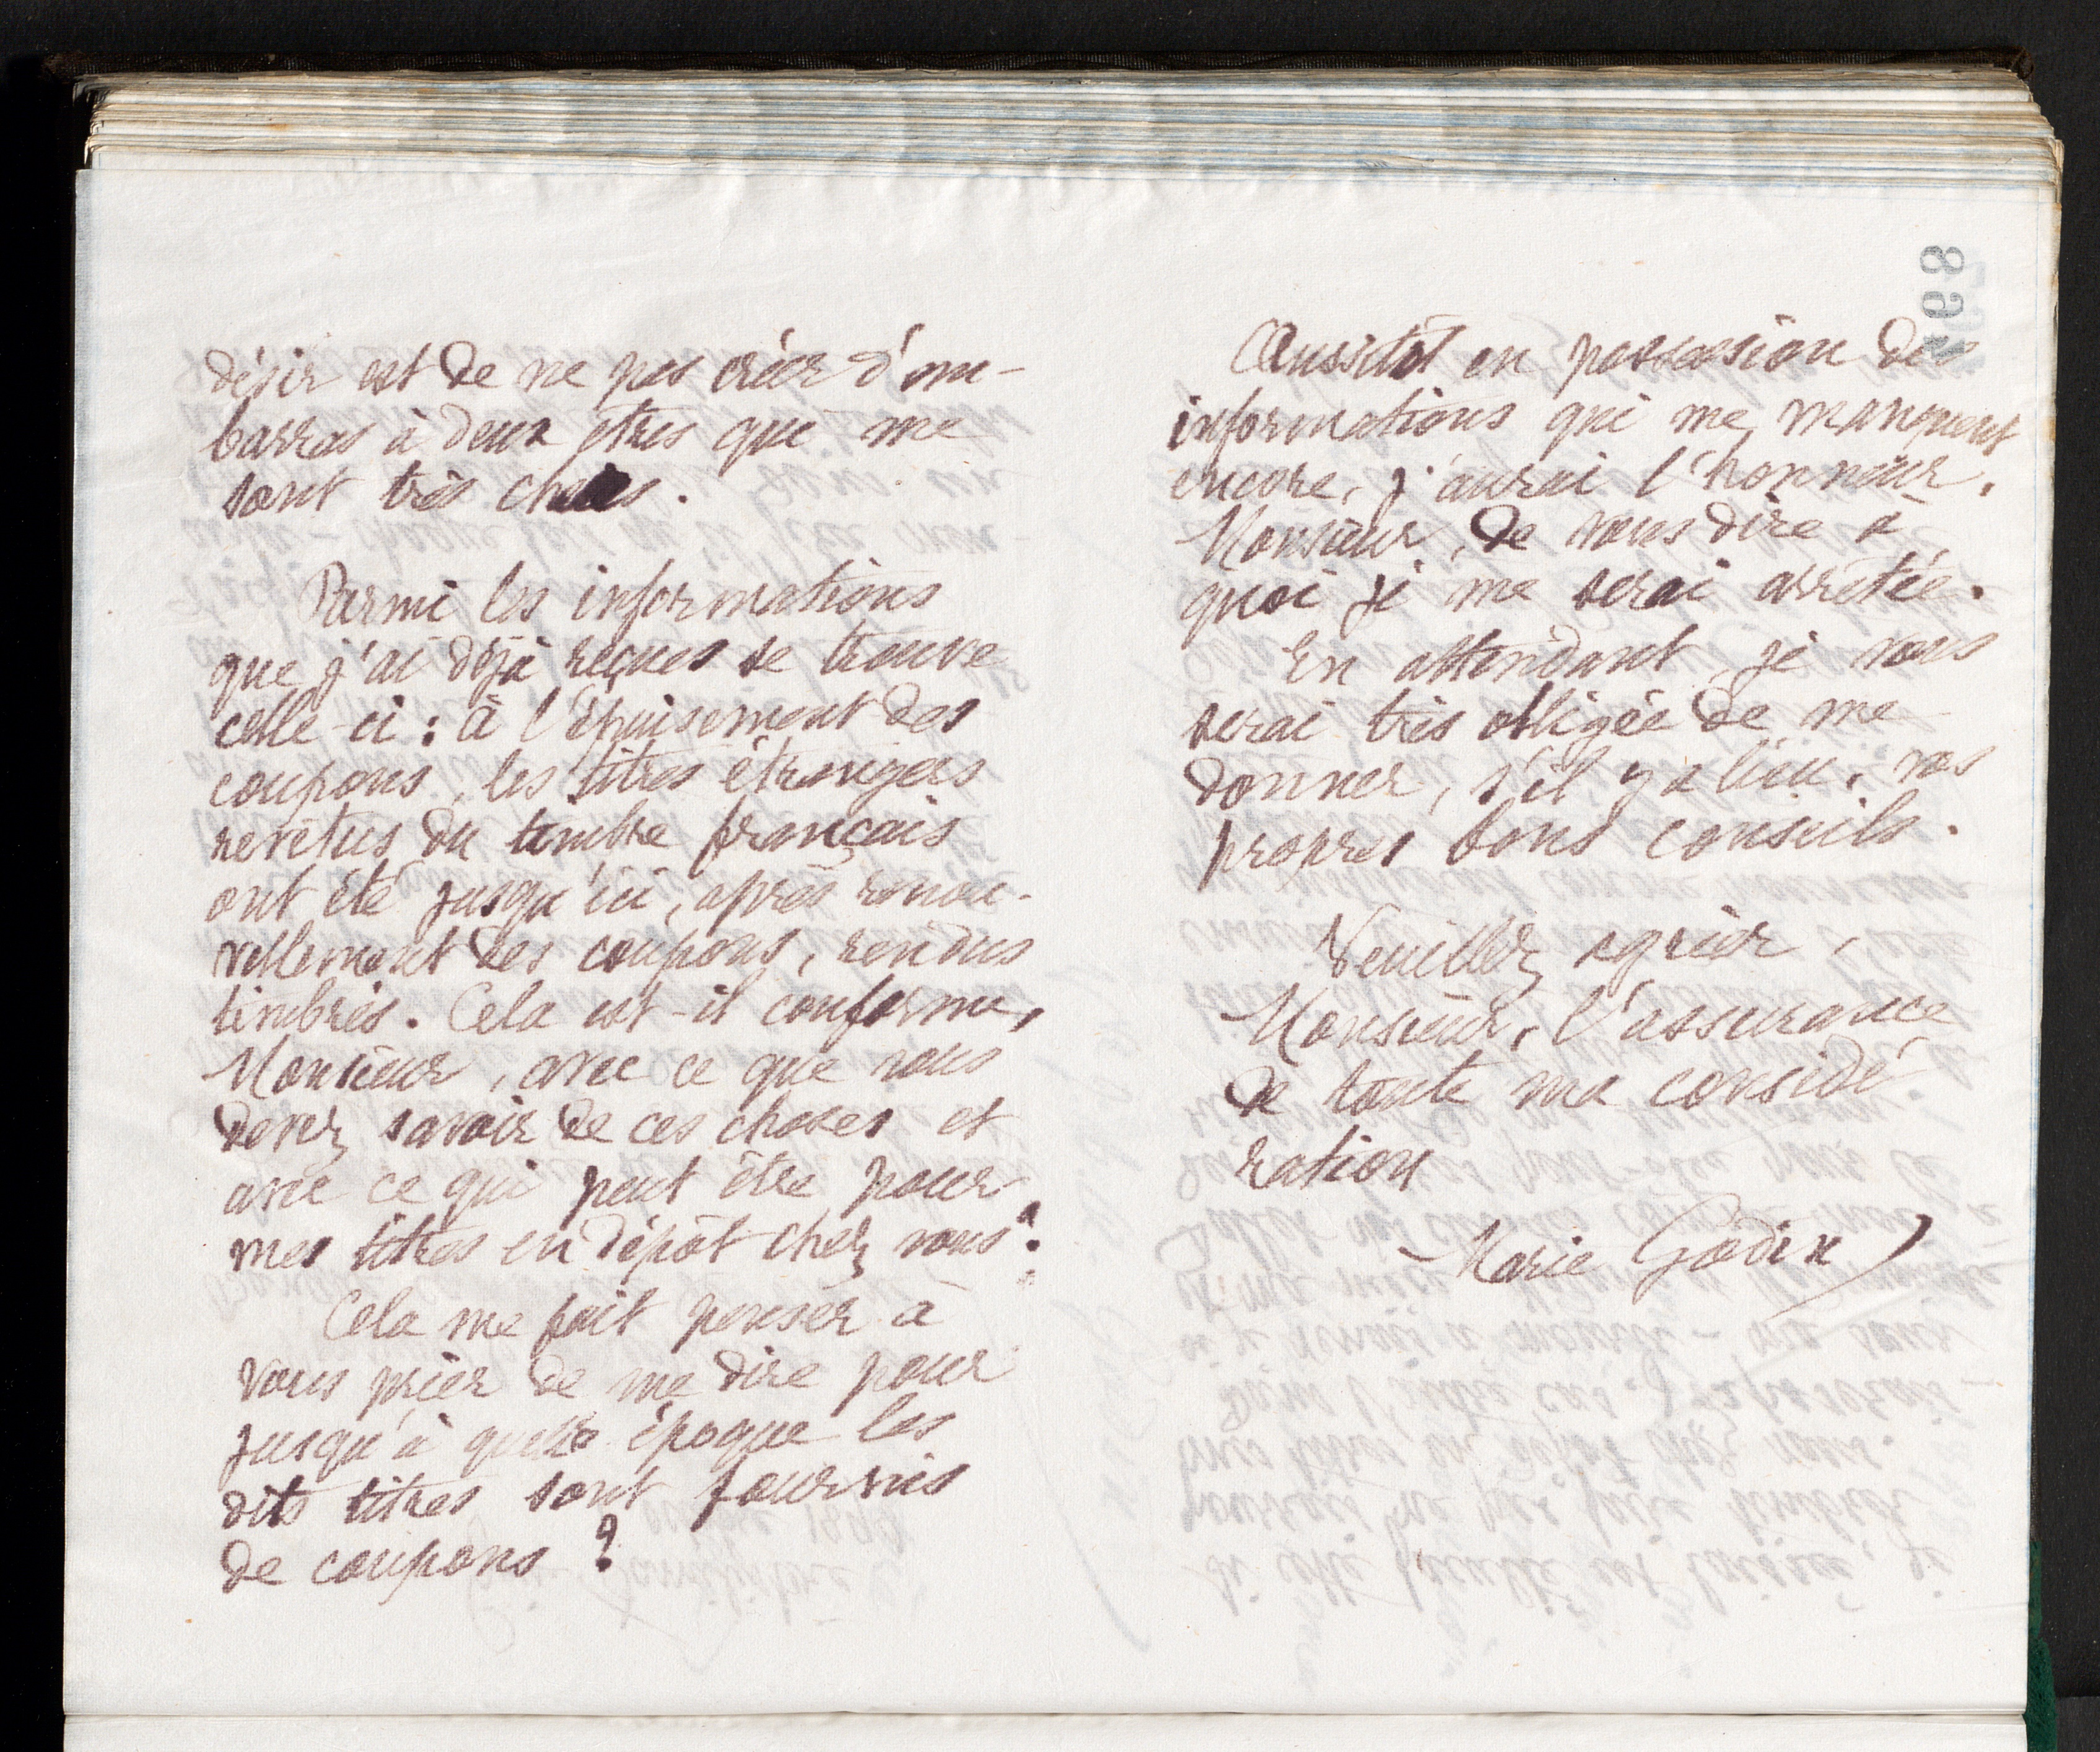 désir est de ne pas créer d'em-
barras à deux êtres qui me
sont très chers.
Parmi les informations
que j'ai déjà reçues se trouve
celle-ci : à l'épuisement des
coupons, les titres étrangers
revêtus du timbre français
ont été jusqu'ici, après renou-
vellement des coupons, rendus
timbrés. Cela est-il conforme,
Monsieur, avec ce que vous
devez savoir de ces choses et
avec ce qui peut être pour
mes titres en dépôt chez vous ?
Cela me fait penser à
vous prier de me dire pour
jusqu'à quelle époque les
dits titres sont fournis
de coupons ?
868
Aussitôt en possession des
informations qui me manquent
encore, j'aurai l'honneur,
Monsieur, de vous dire à
quoi je me serai arrêtée.
En attendant, je vous
serai très obligée de me
donner, s'il y a lieu, vos
propres bons conseils.
Veuillez agréer,
Monsieur, l'assurance
de toute ma considé
ration
Marie Godin